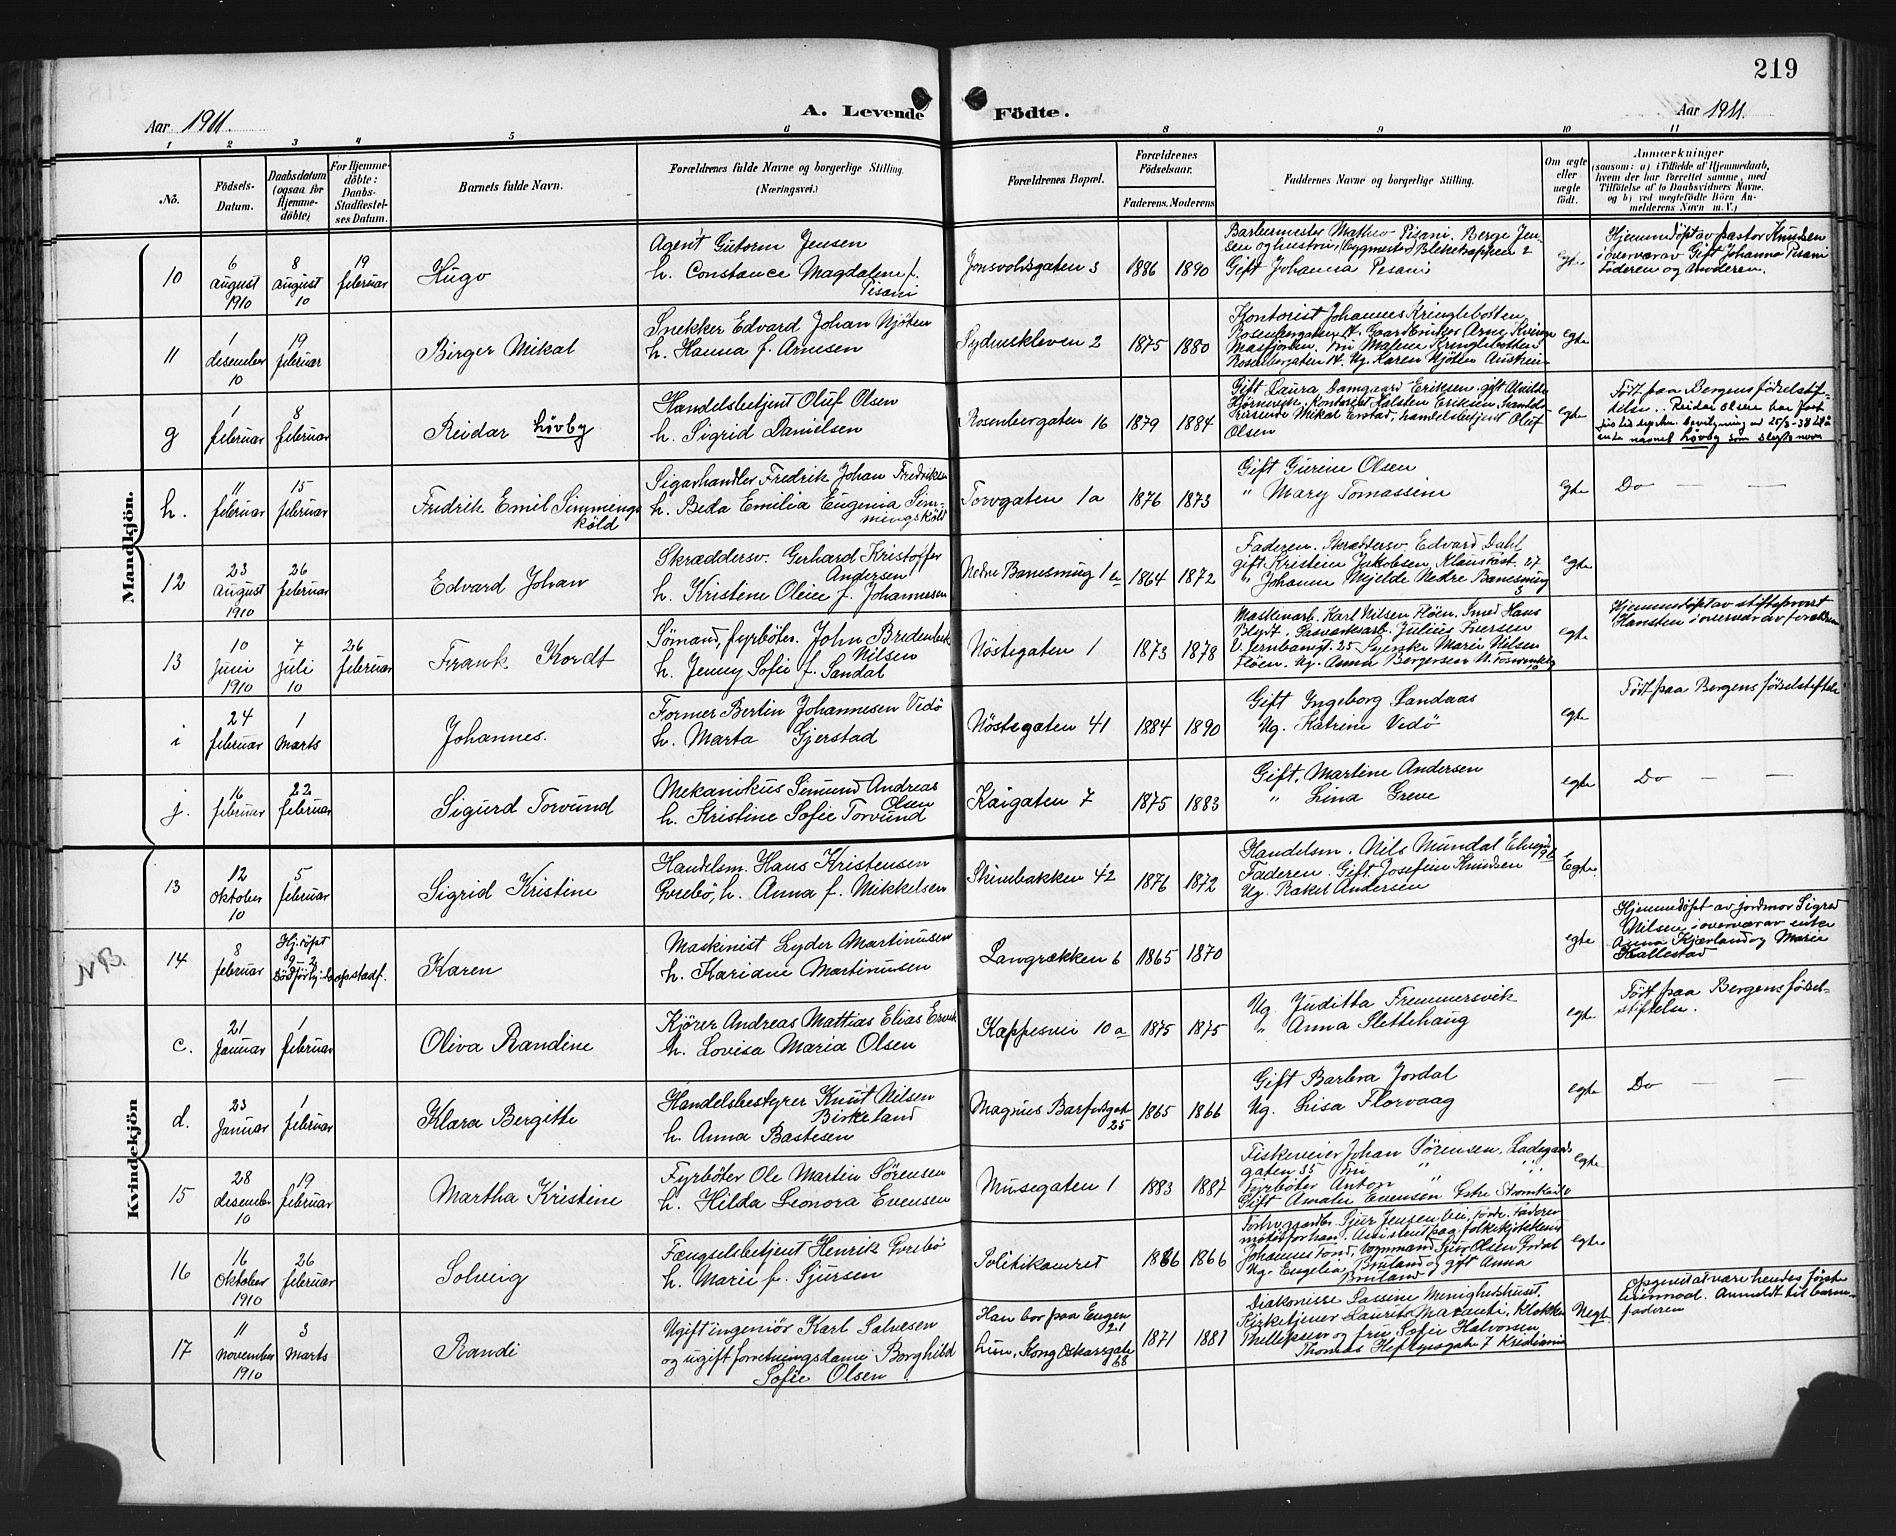 219
Aar 1911.
A. Levende Födte.
Aar 1911.
1 2 3 4 5 6 8 9 10 11
No.
Födsels-Datum.
Daabsdatum (ogsaa for Hjemmedöbte)
For Hjemmedöbte: Daabs-Stadfæstelses Datum.
Barnets fulde Navn.
Forældrenes fulde Navne og borgerlige Stilling. (Næringsvei.)
Forældrenes Bopæl.
Forældrenes Födselsaar.
Faderens. Moderens
Faddernes Navne og borgerlige Stilling.
Om ægte eller uægte födt.
Anmærkninger
(saasom: a) i Tilfælde af Hjemmedaab, hvem der har forrettet samme, med Tilföielse af to Daabsvidners Navne, og b) ved uegtefödte Börn Anmelderens Navn m. V.)
Mandkjön.
10
6 august 1910
8 august 10
19 februar
Hugo
Agent Gutorm Jensen
h. Constance Magdalene f. Pisani
Jonsvoldsgaten 3
1886 1890
Barbermester Matheo Pisani. Berge Jen-
sen og hustru,
Gift Johanna Pisani
egte
Hjemmedöpt av pastor Knudsen
i overvær av Gift Johanna Pisani
Faderen og Moderen.
11
1 desember 10
19 februar
Birger Mikal
Snekker Edvard Johan Njöten
h. Hanna f. Arnesen
Sydneskleven 2
1875 1880
Kontorist Johannes Kringlebotten
Rosenbergaten
Masfjorden. Fru Malene Kringlebotten
Rosenbergaten Ug. Karen Njöten
egte
g
1 februar
8 februar
Reidar Lövby
Handelsbetjent Oluf Olsen
h. Sigrid Danielsen
Rosenbergaten 16
1879 1884
Gift Laura Damgaard Eriksen. gift
Kontorist Halsten Eriksen,
Mikal handelsbetjent Oluf
Olsen
egte
Född paa Bergens födselstif-
telse. Reidar Olsen har
bevilgning av 25/3-38 til å
navnet Lövby som slegtsnavn
h.
11 februar
15 februar
Fredrik Emil Simmings-
köld
Sigarhandler Fredrik Johan Fredriksen
h. Beda Emilia Eugenia Sim-
mingsköld
Torvgaten 1a
1876 1873
Gift Gurine Olsen
" Mary Tomassine
Egte
Do — —
12
23 august 1910
26 februar
Edvard Johan
Skræddersv. Gerhard Kristoffer
Andersen
h. Kristine Oleie f. Johannesen
Nedre Banesmug 1a
1864 1872
Faderen. Skræddersv Edvard Dahl
gift Kristine Jakobsen, 27
" Johanne Mjelde Nedre Banesmug
3
egte
13
10 juni 1910
7 juli 10
26 februar
Frank Kordt
Sömand, fyrböter. John Bredenbek
Nilsen
h. Jenny Sofie f. Sandal
Nöstegaten 1
1873 1878
Maskinarb. Karl Nilsen Flöen. Smed Hans
Blydt. Gasverksarb. Julius Iversen
25 Syerske Marie Nilsen
Flöen. Ug. Anna Bergersen
egte
Hjemmedöpt av stiftsprovst
Hansten i overvær av foreldrene
i
24 februar
1 marts
Johannes.
Former Bertin Johannesen Vedö
h. Marta Gjerstad
Nöstegaten 41
1884 1890
Gift Ingeborg Landaas
Ug. Katrine Vedö
egte
Född paa Bergens födselstiftelse
j.
16 februar
22 februar
Sigurd Torvund
Mekanikus Simund Andreas
Olsen
h. Kristine Sofie Torvund
Kaigaten 7
1875 1883
Gift. Martine Andersen
" Lina Greve
egte
Do — —
Kvindekjön
13
12 oktober 10
5 februar
Sigrid Kristine
Handelsm. Hans Kristensen
Grebö, h. Anna f. Mikkelsen
Skivebakken 42
1876 1872
Handelsm. Nils Mundal
Faderen. Gift. Josefine Knudsen
Ug. Rakel Andersen
Egte
NB.
14
8 februar
Hj.döpt
9-2
Död för
Karen
Maskinist Lyder Martinusen
h. Kariane Martinusen
Lavgrækken 6
1865 1870
egte
Hjemmedöpt av jordmor Sigrid
Nilsen i overvær av enke
Anna Kjærland og Marie
Kallestad
c.
21 januar
1 februar
Oliva Randine
Kjörer Andreas Mattias Elias
h. Lovisa Maria Olsen
Kappesvei 10a
1875 1875
Ug. Juditta Fremmersvik
" Anna Slettehaug
egte
Född paa Bergens födsel-
stiftelse.
d.
23 januar
1 februar
Klara Bergitte
Handelsbestyrer Knut Nilsen
Birkeland
h. Anna Bastesen
Magnus Barfodsgate
25
1865 1866
Gift Barbra Jordal
Ug. Lisa Florvaag
egte
Do — —
15
28 desember 10
19 februar
Martha Kristine
Fyrböter Ole Martin Sörensen
h. Hilda Leonora Evensen
Musegaten 1
1883 1887
Johan Sörensen, Ladegaards
gaten 35 Fru " "
Fyrböter Anton "
Gift Amalie Evensen
egte
16
16 oktober 1910
26 februar
Solveig
Fængselsbetjent Henrik Grebö
h. Marie f. Sjursen
Politikamret
1866 1866
Sjur Jensen
Johannes Sjur Olsen
Ug. Engelia Bruland og gift Anna
Bruland
egte
17
11 november 1910
3 marts
Randi
Ugift ingeniör Karl Salvesen
og ugift forretningsdame Borghild
Sofie Olsen
Han bor paa Eugen
21
hun, Kong Oskarsgate
68
1871 1881
Diakonisse Menighetshuset.
Kirketjener Laurits
og fru, Sofie Halvorsen
Thomas Heftyesgate 7 Kristiania
Uegte
Opgivet at være hendes förste
leiermaal. Anmeldt til barne-
faderen